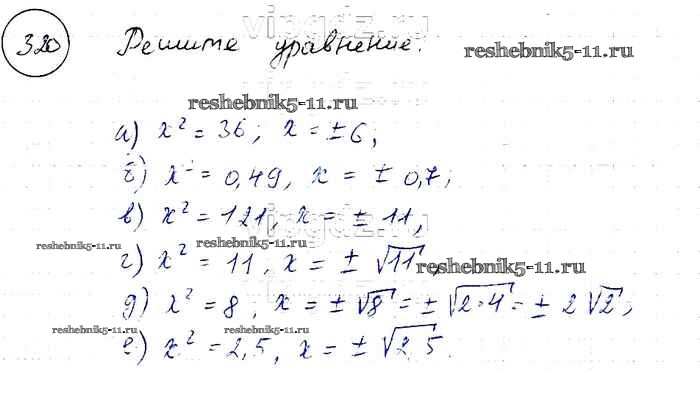 vipgdz.com
320 Решите уравнение: reshebnik5-11.ru
reshebnik5-11.ru
а) x² = 36; x = ±6;
б) x² = 0,49, x = ± 0,7;
в) x² = 121, x = ± 11,
vipgdz.com
reshebnik5-11.ru reshebnik5-11.ru
г) x² = 11, x = ± √11, reshebnik5-11.ru
д) x² = 8, x = ± √8 = ± √2·4 = ± 2√2;
reshebnik5-11.ru reshebnik5-11.ru
е) x² = 2,5, x = ± √2,5.